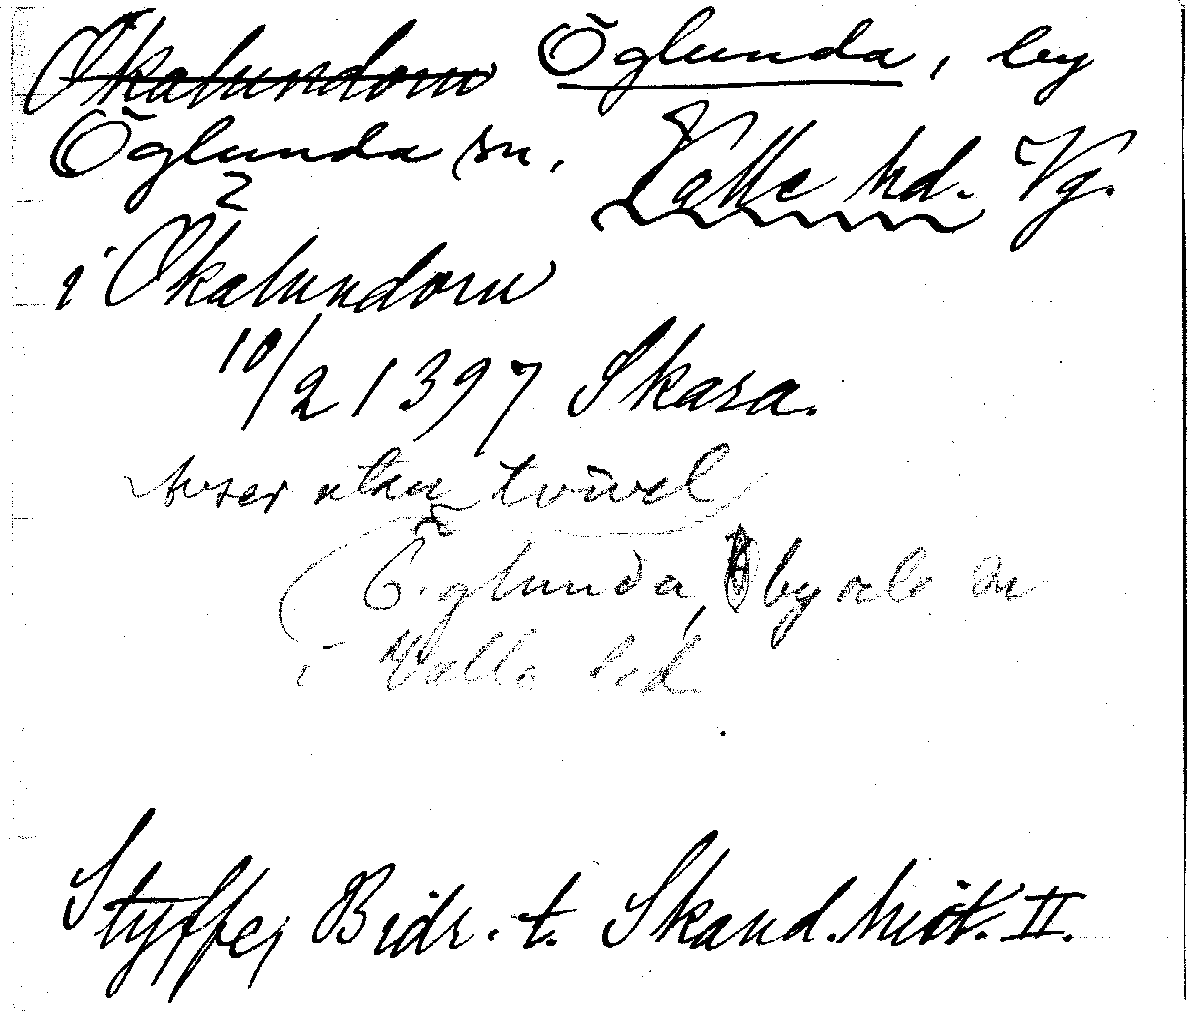 Økalundom Öglunda, by
Öglunda sn, Valle hd. Vg.
i Økalundom
10/2 1397 Skara.
Avser utan tvivel
Öglunda, by och sn
i Valle hd
Styffe, Bidr. t. Skand. hist. II.